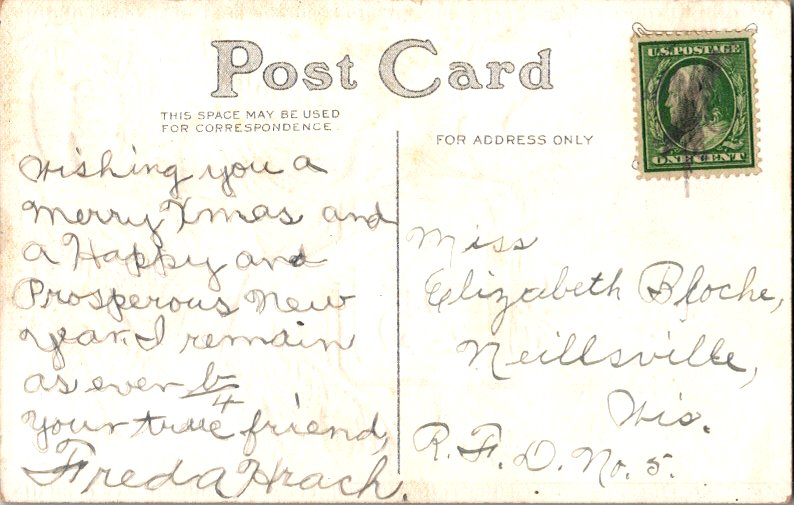 Post Card
THIS SPACE MAY BE USED
FOR CORRESPONDENCE
FOR ADDRESS ONLY
U.S. POSTAGE
ONE CENT
Wishing you a
Merry Xmas and
a Happy and
Prosperous New
Year. I remain
as ever b/4
your true friend,
Freda Hrach.
Miss
Elizabeth Bloche,
Neillsville,
Wis.
R. F. D. No. 5.